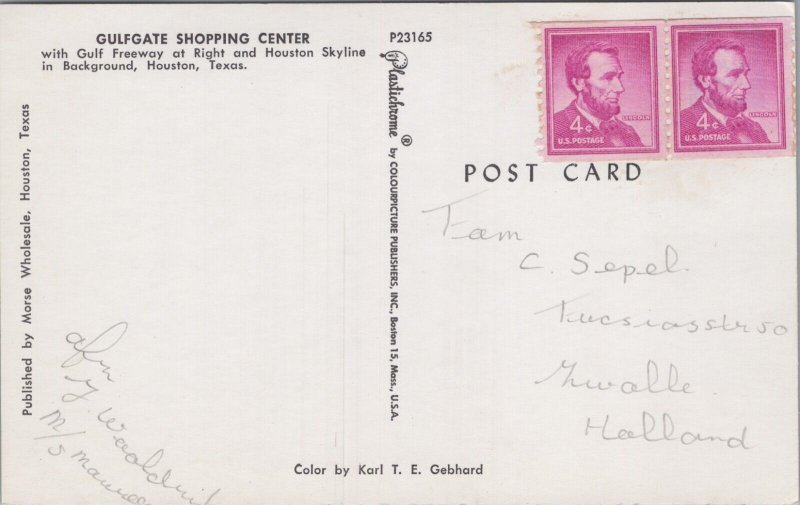 GULFGATE SHOPPING CENTER
with Gulf Freeway at Right and Houston Skyline
in Background, Houston, Texas.
P23165
Plastichrome ® by COLOURPICTURE PUBLISHERS, INC., Boston 15, Mass., U.S.A.
Published by Morse Wholesale, Houston, Texas
4¢ LINCOLN
U.S. POSTAGE
4¢ LINCOLN
U.S. POSTAGE
POST CARD
Fam
C. Sepel
50
Zwolle
Holland
afz
M/S
Color by Karl T. E. Gebhard